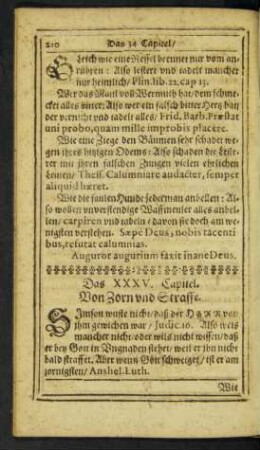 210 Das 34 Capitel/
Gleich wie eine Nessel brennet nur vom an-
rühren: Also lestert vnd tadelt mancher
nur heimlich/ Plin. lib. 22. cap 13.
Wer das Maul voll Wermuth hat/dem schme-
cket alles bitter: Also wer ein falsch bitter Hertz hat/
der verricht vnd tadelt alles/ Frid. Barb. Præstat
uni probo, quam mille improbis placere.
Wie eine Ziege den Bäumen sehr schadet we-
gen jhres hitzigen Odems: Also schaden die Leste-
rer mit jhren falschen Zungen vielen ehrlichen
Leuten/ Theis. Calumniare audacter, semper
aliquid hæret.
Wie die faulen Hunde jederman anbellen: Al-
so wollen unverstendige Wassmeuler alles anbel-
len/ carpiren vnd tadeln/ davon sie doch am we-
nigsten verstehen. Sæpe Deus, nobis tacenti
bus, refutat calumnias.
Auguror augurium faxit inane Deus.
Das XXXV. Capitel.
Von Zorn vnd Straffe.
Simson wuste nicht/ daß der HERR von
jhm gewichen war/ Judic. 16. Also weis
mancher nicht/ oder wils nicht wissen/ daß
er bey Gott in Vngnaden stehet/ weil er jhn nicht
bald straffet. Aber wenn Gott schweiget/ ist er am
zornigsten/ Anshel. Luth.
Wie